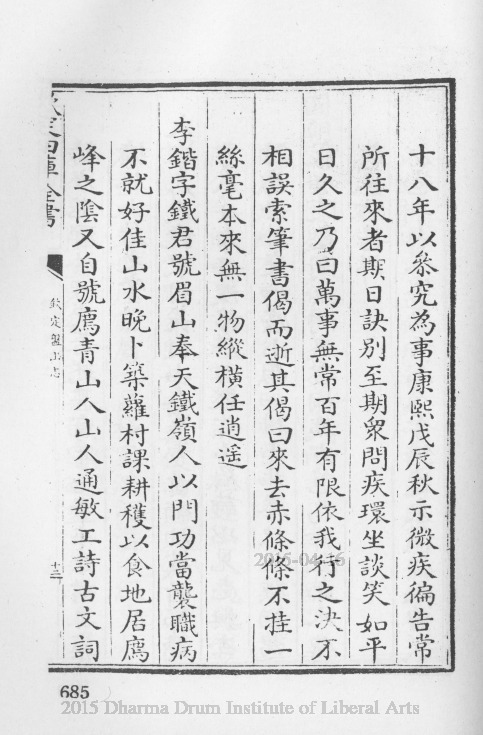 十八年以叅究為事康熙戊辰秋示微疾徧告常
所往來者期日訣別至期衆問疾環坐談笑如平
日久之乃曰萬事無常百年有限依我行之決不
相誤索筆書偈而逝其偈曰來去赤條條不挂一
絲毫本來無一物縱橫任逍遥
李鍇字鐵君號眉山奉天鐵嶺人以門功當襲職病
不就好佳山水晚卜築蘿村課耕穫以食地居廌
峰之陰又自號廌青山人山人通敏工詩古文詞
欽定四庫全書
欽定盤山志
十三
2015-04-16
685
2015 Dharma Drum Institute of Liberal Arts